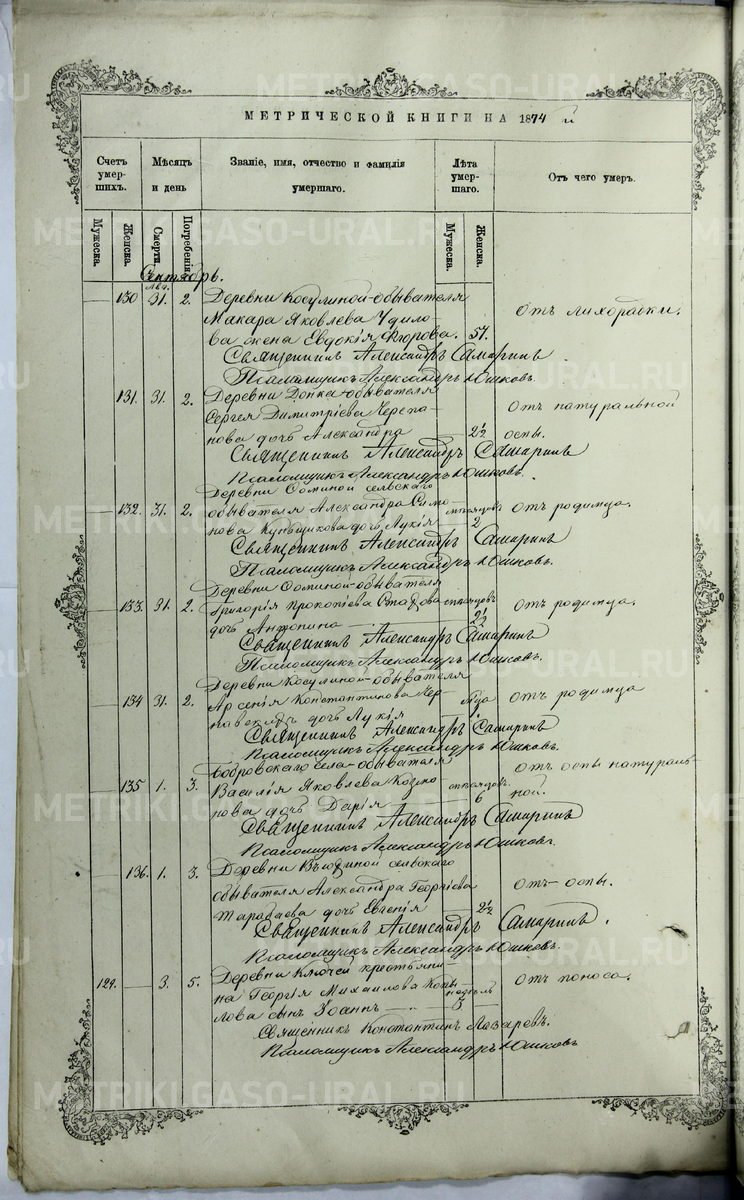 МЕТРИЧЕСКОЙ КНИГИ НА 1874 й
Счетъ умер-шихъ.
Мѣсяцъ и день
Званіе, имя, отчество и фамилія умершаго.
Лѣта умер-шаго.
Отъ чего умеръ.
Мужеска.
Женска.
Смерти.
Погребенія.
Мужеска.
Женска.
Сентябрь.
Авг.
130 31. 2. Деревни Косулиной обывателя
Макара Яковлева Удило- Отъ лихорадки.
ва жена Евдокія 57.
Священникъ Александръ Самаринъ
Псаломщикъ Александръ Юшковъ.
131. 31. 2. Деревни обывателя
Сергея Димитріева Черепа- Отъ натуральной
нова дочь Александра 2½ оспы.
Священникъ Александръ Самаринъ
Псаломщикъ Александръ Юшковъ.
Деревни сельскаго
132. 31. 2. обывателя Александра Симо- мѣсяцовъ Отъ родимца.
нова дочь Лукія 2
Священникъ Александръ Самаринъ
Псаломщикъ Александръ Юшковъ.
Деревни обывателя
133. 31. 2. Григорія Прокопіева мѣсяцовъ Отъ родимца.
дочь Антонина 2½
Священникъ Александръ Самаринъ
Псаломщикъ Александръ Юшковъ.
Деревни Косулиной обывателя
134 31. 2. Арсенія Константинова Чер- Отъ родимца
дочь Лукія 1
Священникъ Александръ Самаринъ
Псаломщикъ Александръ Юшковъ.
Бобровскаго села обывателя Отъ оспы натураль
135 1. 3. Василія Яковлева мѣсяцовъ. ной.
нова дочь Дарія 6
Священникъ Александръ Самаринъ
Псаломщикъ Александръ Юшковъ.
136. 1. 3. Деревни сельскаго
обывателя Александра Георгіева Отъ оспы.
Тарабаева дочь Евгенія 2½
Священникъ Александръ Самаринъ.
Псаломщикъ Александръ Юшковъ.
129. 3. 5. Деревни Ключей крестьяни- Отъ поноса.
на Георгія Михаилова Копы недѣль
лова сынъ Іоаннъ 3
Священникъ Константинъ Лазаревъ.
Псаломщикъ Александръ Юшковъ
METRIKI.GASO-URAL.RU